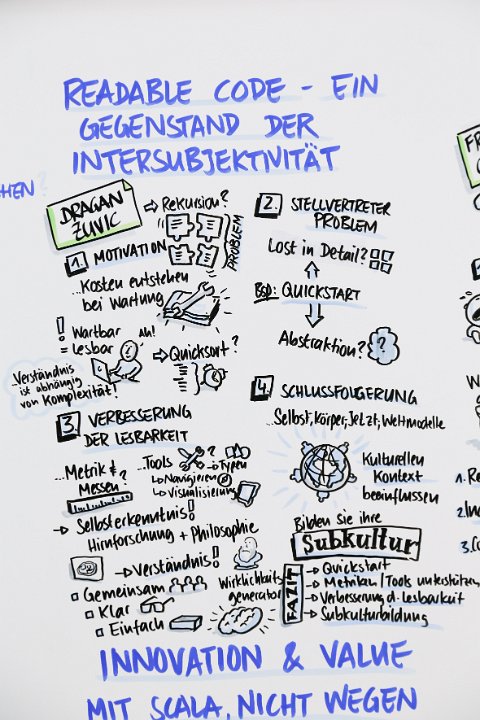 READABLE CODE - EIN
GEGENSTAND DER
INTERSUBJEKTIVITÄT
HEN?
DRAGAN
ZUVIC
→ Rekursion?
PROBLEM
1. MOTIVATION
...Kosten entstehen
bei Wartung
! Wartbar
= Lesbar
Ah!
→ Quicksort?
Verständnis
ist abhängig
von Komplexität!
2. STELLVERTRETER
PROBLEM
Lost in Detail?
BSP: QUICKSTART
Abstraktion?
?
3. VERBESSERUNG
DER LESBARKEIT
...Metrik?
Messen
...Tools
...Typen
↳ Navigieren
↳ Visualisierung
→ Selbsterkenntnis!
Hirnforschung + Philosophie
→ Verständnis!
Gemeinsam
Klar
Einfach
Wirklichkeits
generator
4. SCHLUSSFOLGERUNG
...Selbst, Körper, Jetzt, Weltmodelle
Kulturellen
Kontext
beeinflussen
Bilden sie ihre
Subkultur
FAZIT
→ Quickstart
→ Metriken/Tools unterstützen
→ Verbesserung d. Lesbarkeit
→ Subkulturbildung
INNOVATION & VALUE
MIT SCALA, NICHT WEGEN
FR
W
1. Re
2. In
3.